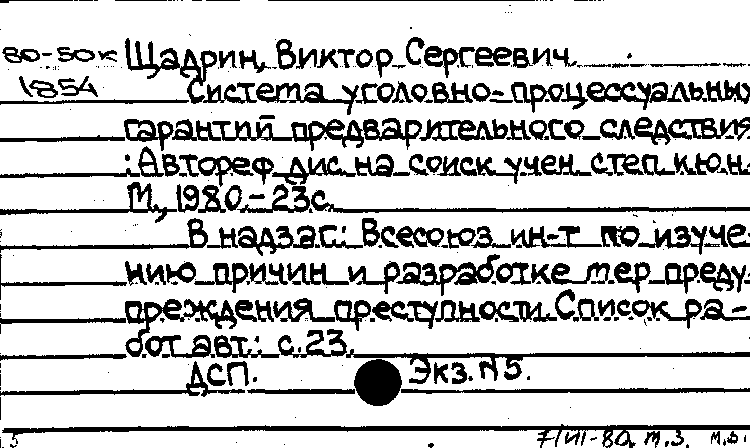 80-50к Щадрин, Виктор Сергеевич.
1854 Система уголовно-процессуальных
гарантий предварительного следствия
: Автореф. дис. на соиск. учен. степ. к.ю.н.
М., 1980.-23с.
В надзаг.: Всесоюз. ин-т по изуче-
нию причин и разработке мер преду-
преждения преступности. Список ра-
бот авт.: с.23.
ДСП. Экз. N5.
7/VII-80. т.3. м.б.